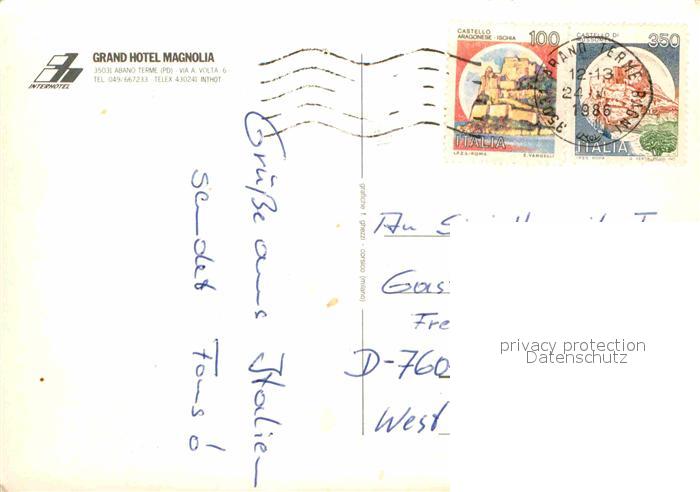 GRAND HOTEL MAGNOLIA
35031 ABANO TERME (PD) - VIA A. VOLTA 6
TEL. 049/667233 - TELEX 430241 INTHOT
INTERHOTEL
CASTELLO ARAGONESE - ISCHIA
100
ITALIA
I.P.Z.S. - ROMA
CASTELLO DI
350
ITALIA
I.P.Z.S. ROMA
ABANO TERME
12-13
24
1986
Grüße aus Italien
sendet
grafiche f. ghezzi - corsico (milano)
An
Gas
Fre
D-760
West
privacy protection
Datenschutz